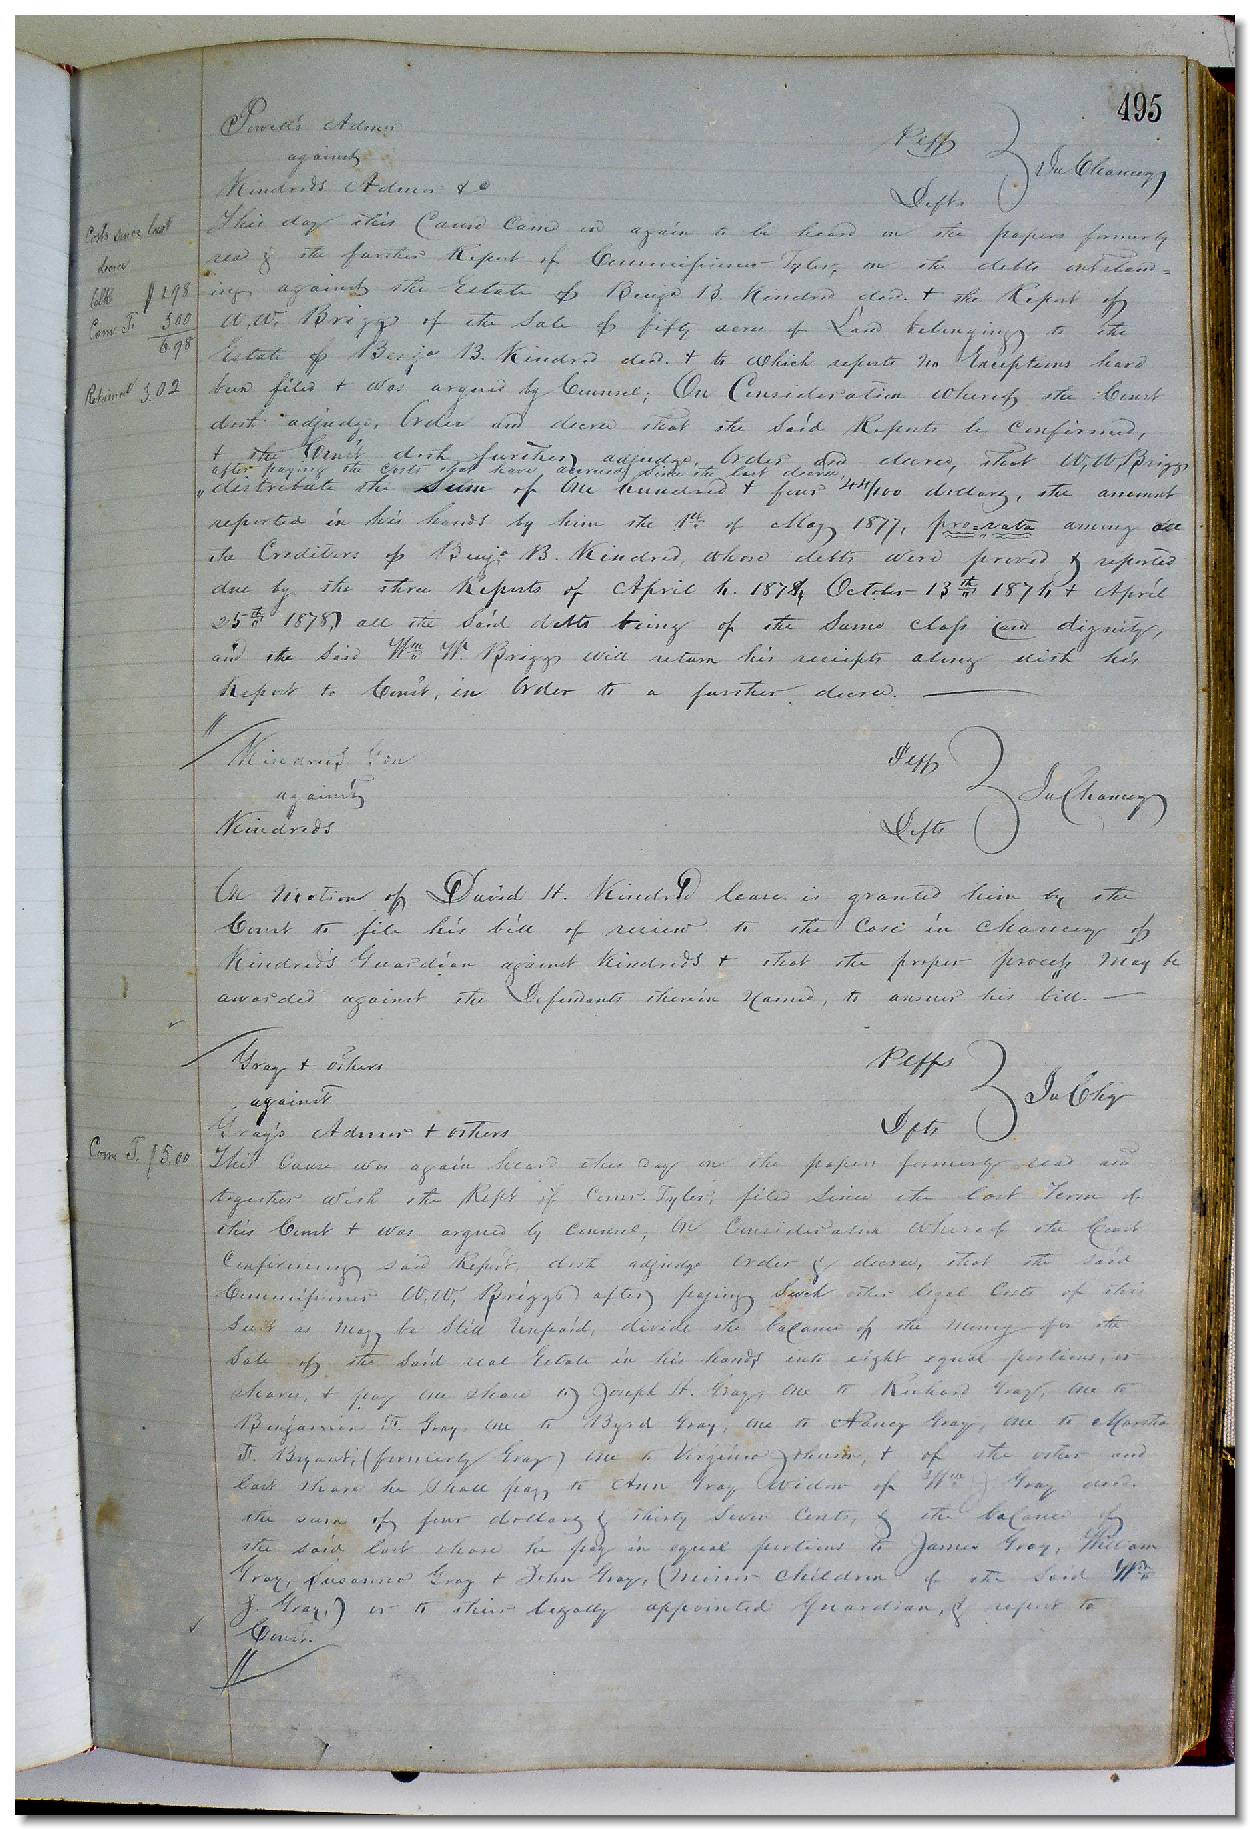 495
Powell's Admr Plffs
against In Chancery
Kindreds Admr & c Defts
This day this Cause came on again to be heard on the papers formerly
read & the further Report of Commissioner Tyler, on the debts outstand=
ing against the Estate of Benja B. Kindred decd. & the Report of
W. W. Briggs of the Sale of fifty acres of Land belonging to the
Estate of Benja B. Kindred decd. & to which reports no Exceptions have
been filed & was argued by Counsel; On Consideration whereof the Court
doth adjudge, Order and decree that the said Reports be confirmed,
& the Court doth further adjudge, Order and decree, that W. W. Briggs
after paying the costs that have accrued since the last decree
distribute the Sum of One hundred & four 44/100 dollars, the amount
reported in his hands by him the 1st of May 1877, pro-rata among all
the Creditors of Benja B. Kindred, whose debts were proved & reported
due by the three Reports of April 4. 1874, October 13th 1874 & April
25th 1878, all the said debts being of the Same class and dignity,
and the said Wm W. Briggs will return his receipts along with his
Report to Court, in Order to a further decree.
Costs since last
decree
Clk $1.98
Com T. 5.00
6.98
Retained 3.02
Kindred's Gdn Plffs
against In Chancery
Kindreds Defts
On Motion of David H. Kindred leave is granted him by the
Court to file his bill of review to the Case in Chancery of
Kindred's Guardian against Kindreds & that the proper process May be
awarded against the Defendants therein Named, to answer his bill.
Gray & others Plffs
against In Chy
Gray's Admr & others Dfts
Com T. $5.00
This Cause was again heard this day on the papers formerly read and
together with the Rept of Comr. Tyler, filed Since the last Term of
this Court & was argued by counsel, On Consideration whereof the Court
Confirming said Report, doth adjudge order & decree, that the said
Commissioner W. W. Briggs after paying Such other legal Costs of this
Suit as May be Still Unpaid, divide the balance of the Money for the
Sale of the Said real Estate in his hands into eight equal portions, or
shares, & pay one share to Joseph H. Gray, One to Richard Gray, One to
Benjamin F. Gray, One to Byrd Gray, one to Nancy Gray, one to Martha
F. Bryant, (formerly Gray) One to Virginia Johnson, & of the other and
last share he shall pay to Ann Gray Widow of Wm J Gray decd.
the sum of four dollars & thirty Seven Cents, & the balance of
the said last share he pay in equal portions to James Gray, William
Gray, Susanna Gray & John Gray, (Minor Children of the Said Wm
J. Gray,) or to their legally appointed Guardian, & report to
Court.